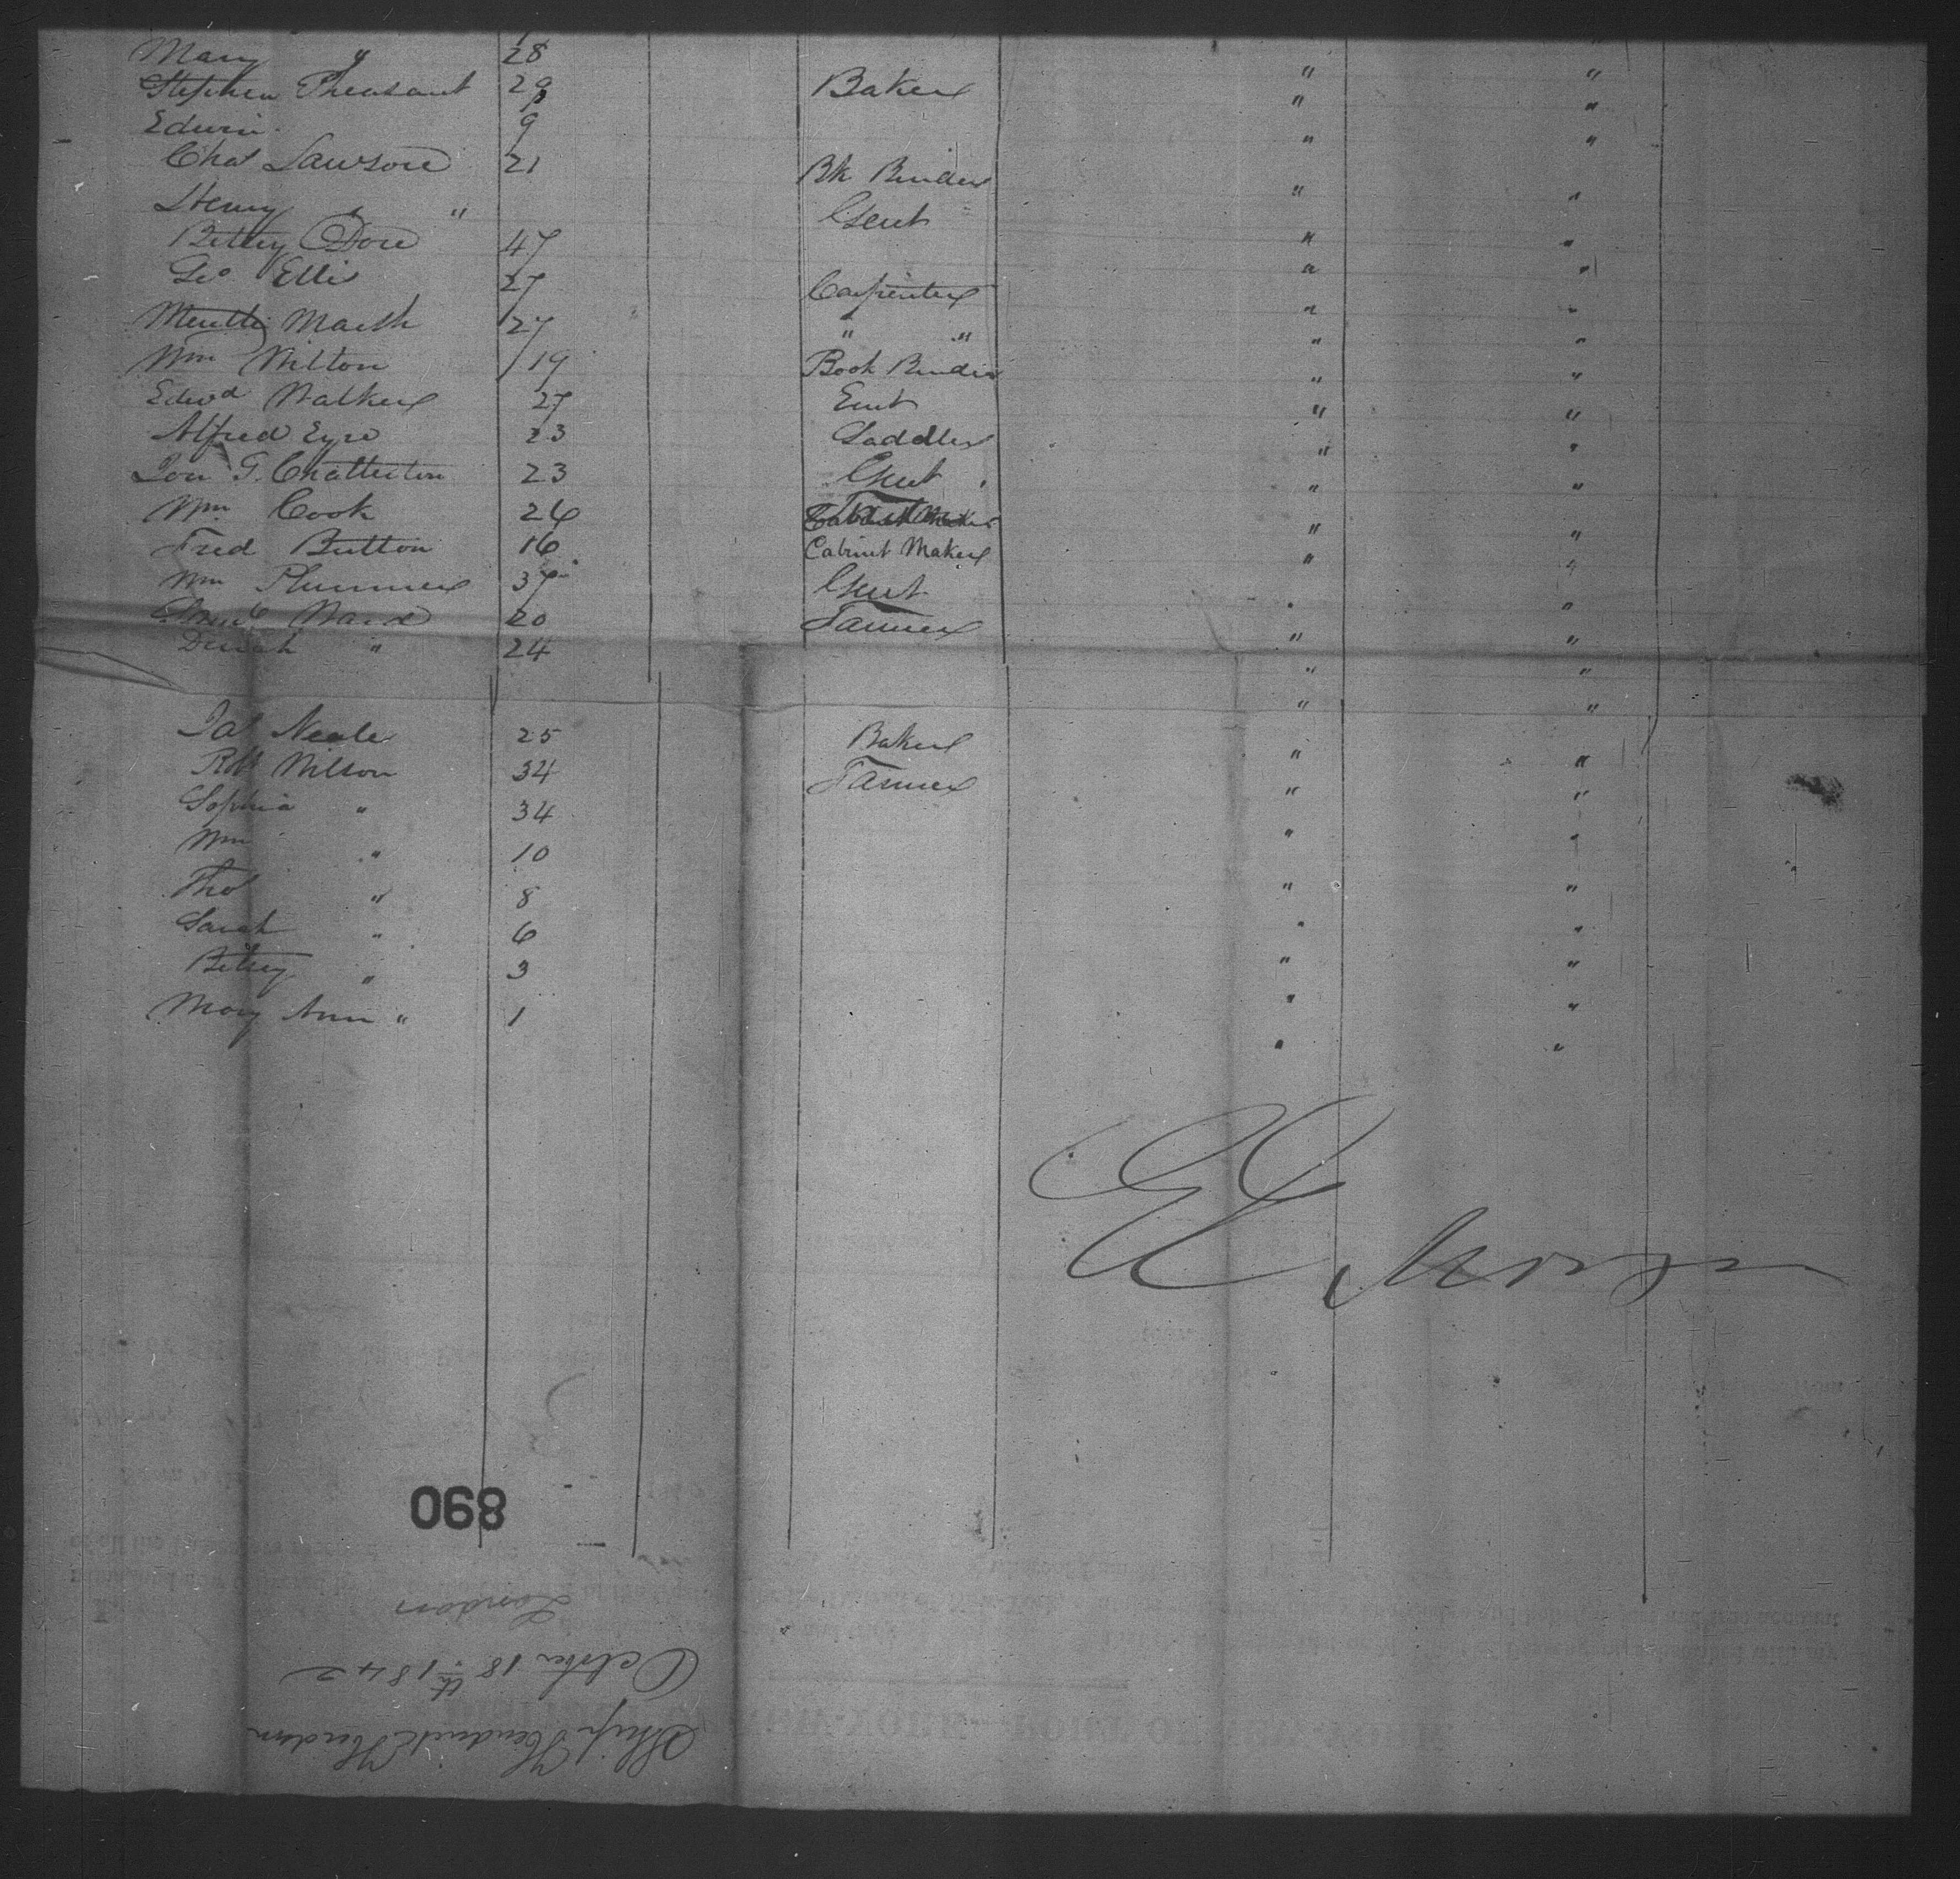 Mary " 28 " "
Stephen Pheasant 29 Baker " "
Edwin 9 " "
Chas Lawson 21 Bk Binder " "
Henry " Gent " "
Betsey Dore 47 " "
Geo Ellis 27 Carpenter " "
Marsh 27 " " " "
Wm Wilton 19 Book Binder " "
Edwd Walker 27 Gent " "
Alfred Eyre 23 Saddler " "
G. Chatterton 23 Gent " "
Wm Cook 26 " "
Fred Button 16 Cabinet Maker " "
Wm Plummer 37 Gent " "
Ward 20 Farmer " "
" 24 " "
Jas Neale 25 Baker " "
Robt Wilson 34 Farmer " "
Sophia " 34 " "
Wm " 10 " "
Thos " 8 " "
Sarah " 6 " "
Betsey " 3 " "
Mary Ann " 1 " "
E E Morgan
068
London
October 18th 1842
Ship Hendrick Hudson